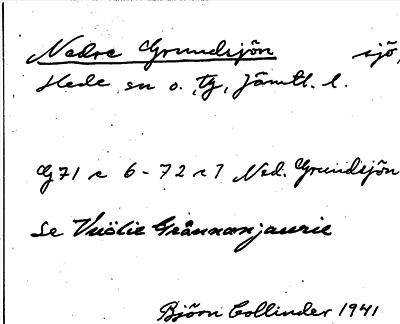 Nedre Grundsjön sjö,
Hede sn o. tg, Jämtl. l.
G71 c 6 - 72 c 7 Ned. Grundsjön
Se Vuölie Grånnanjaurie
Björn Collinder 1941